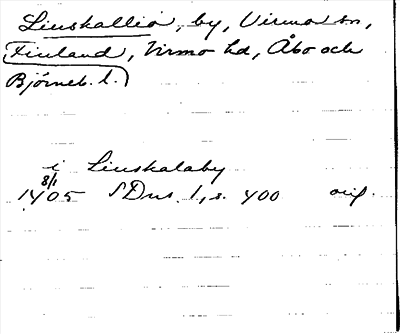 Liuskallio, by, Virmo sn,
Finland, Virmo hd, Åbo och
Björneb. l.
i Liuskalaby
1405 8/1 SDns. 1, s. 400 orig.